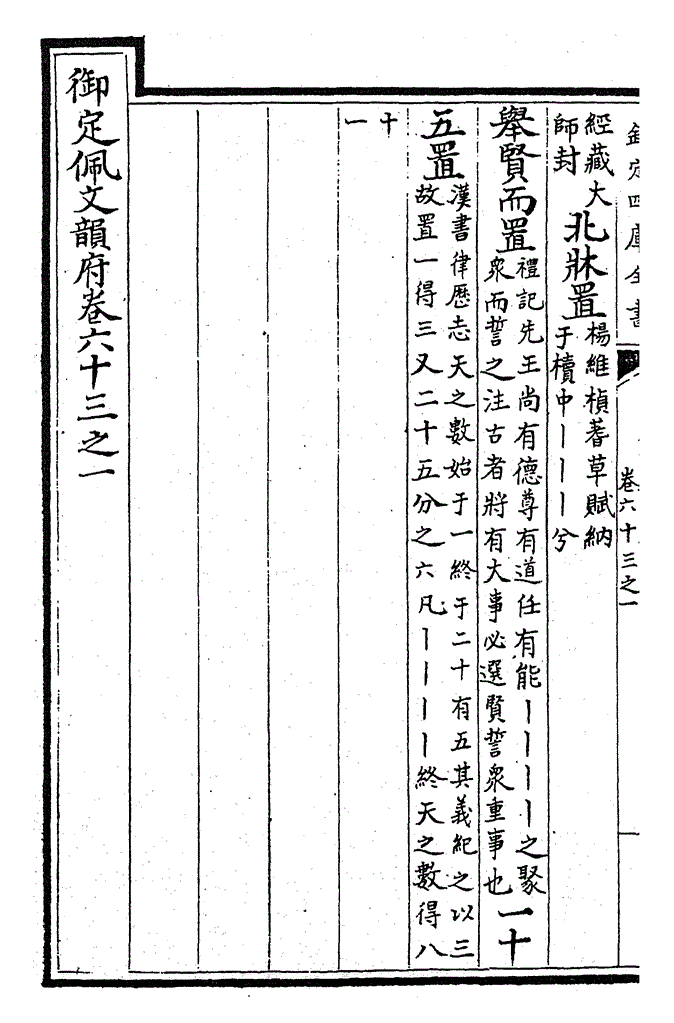 欽定四庫全書
卷六十三之一
經藏大
師封
北牀置
楊維楨蓍草賦納
于櫝中丨丨丨兮
舉賢而置
禮記先王尚有德尊有道任有能丨丨丨丨之聚
衆而誓之注古者將有大事必選賢誓衆重事也
一十
五置
漢書律歷志天之數始于一終于二十有五其義紀之以三
故置一得三又二十五分之六凡丨丨丨丨終天之數得八
十
一
御定佩文韻府卷六十三之一